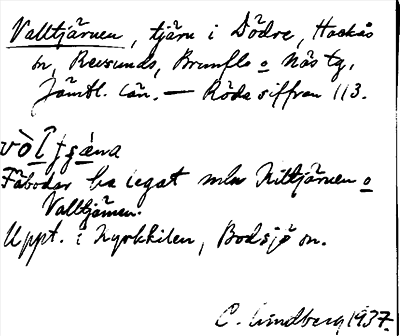 Valltjärnen, tjärn i Dödre, Hackås
sn, Revsunds, Brunflo o Näs tg,
Jämtl. län. — Röda siffran 113.
Fäbodar ha legat mln Kittjärnen o
Valltjärnen.
Uppt. i Kyrkkilen, Bodsjö sn.
C. Lindberg 1937.